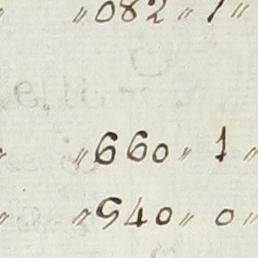 〃082〃1〃
〃660〃1〃
〃540〃0〃